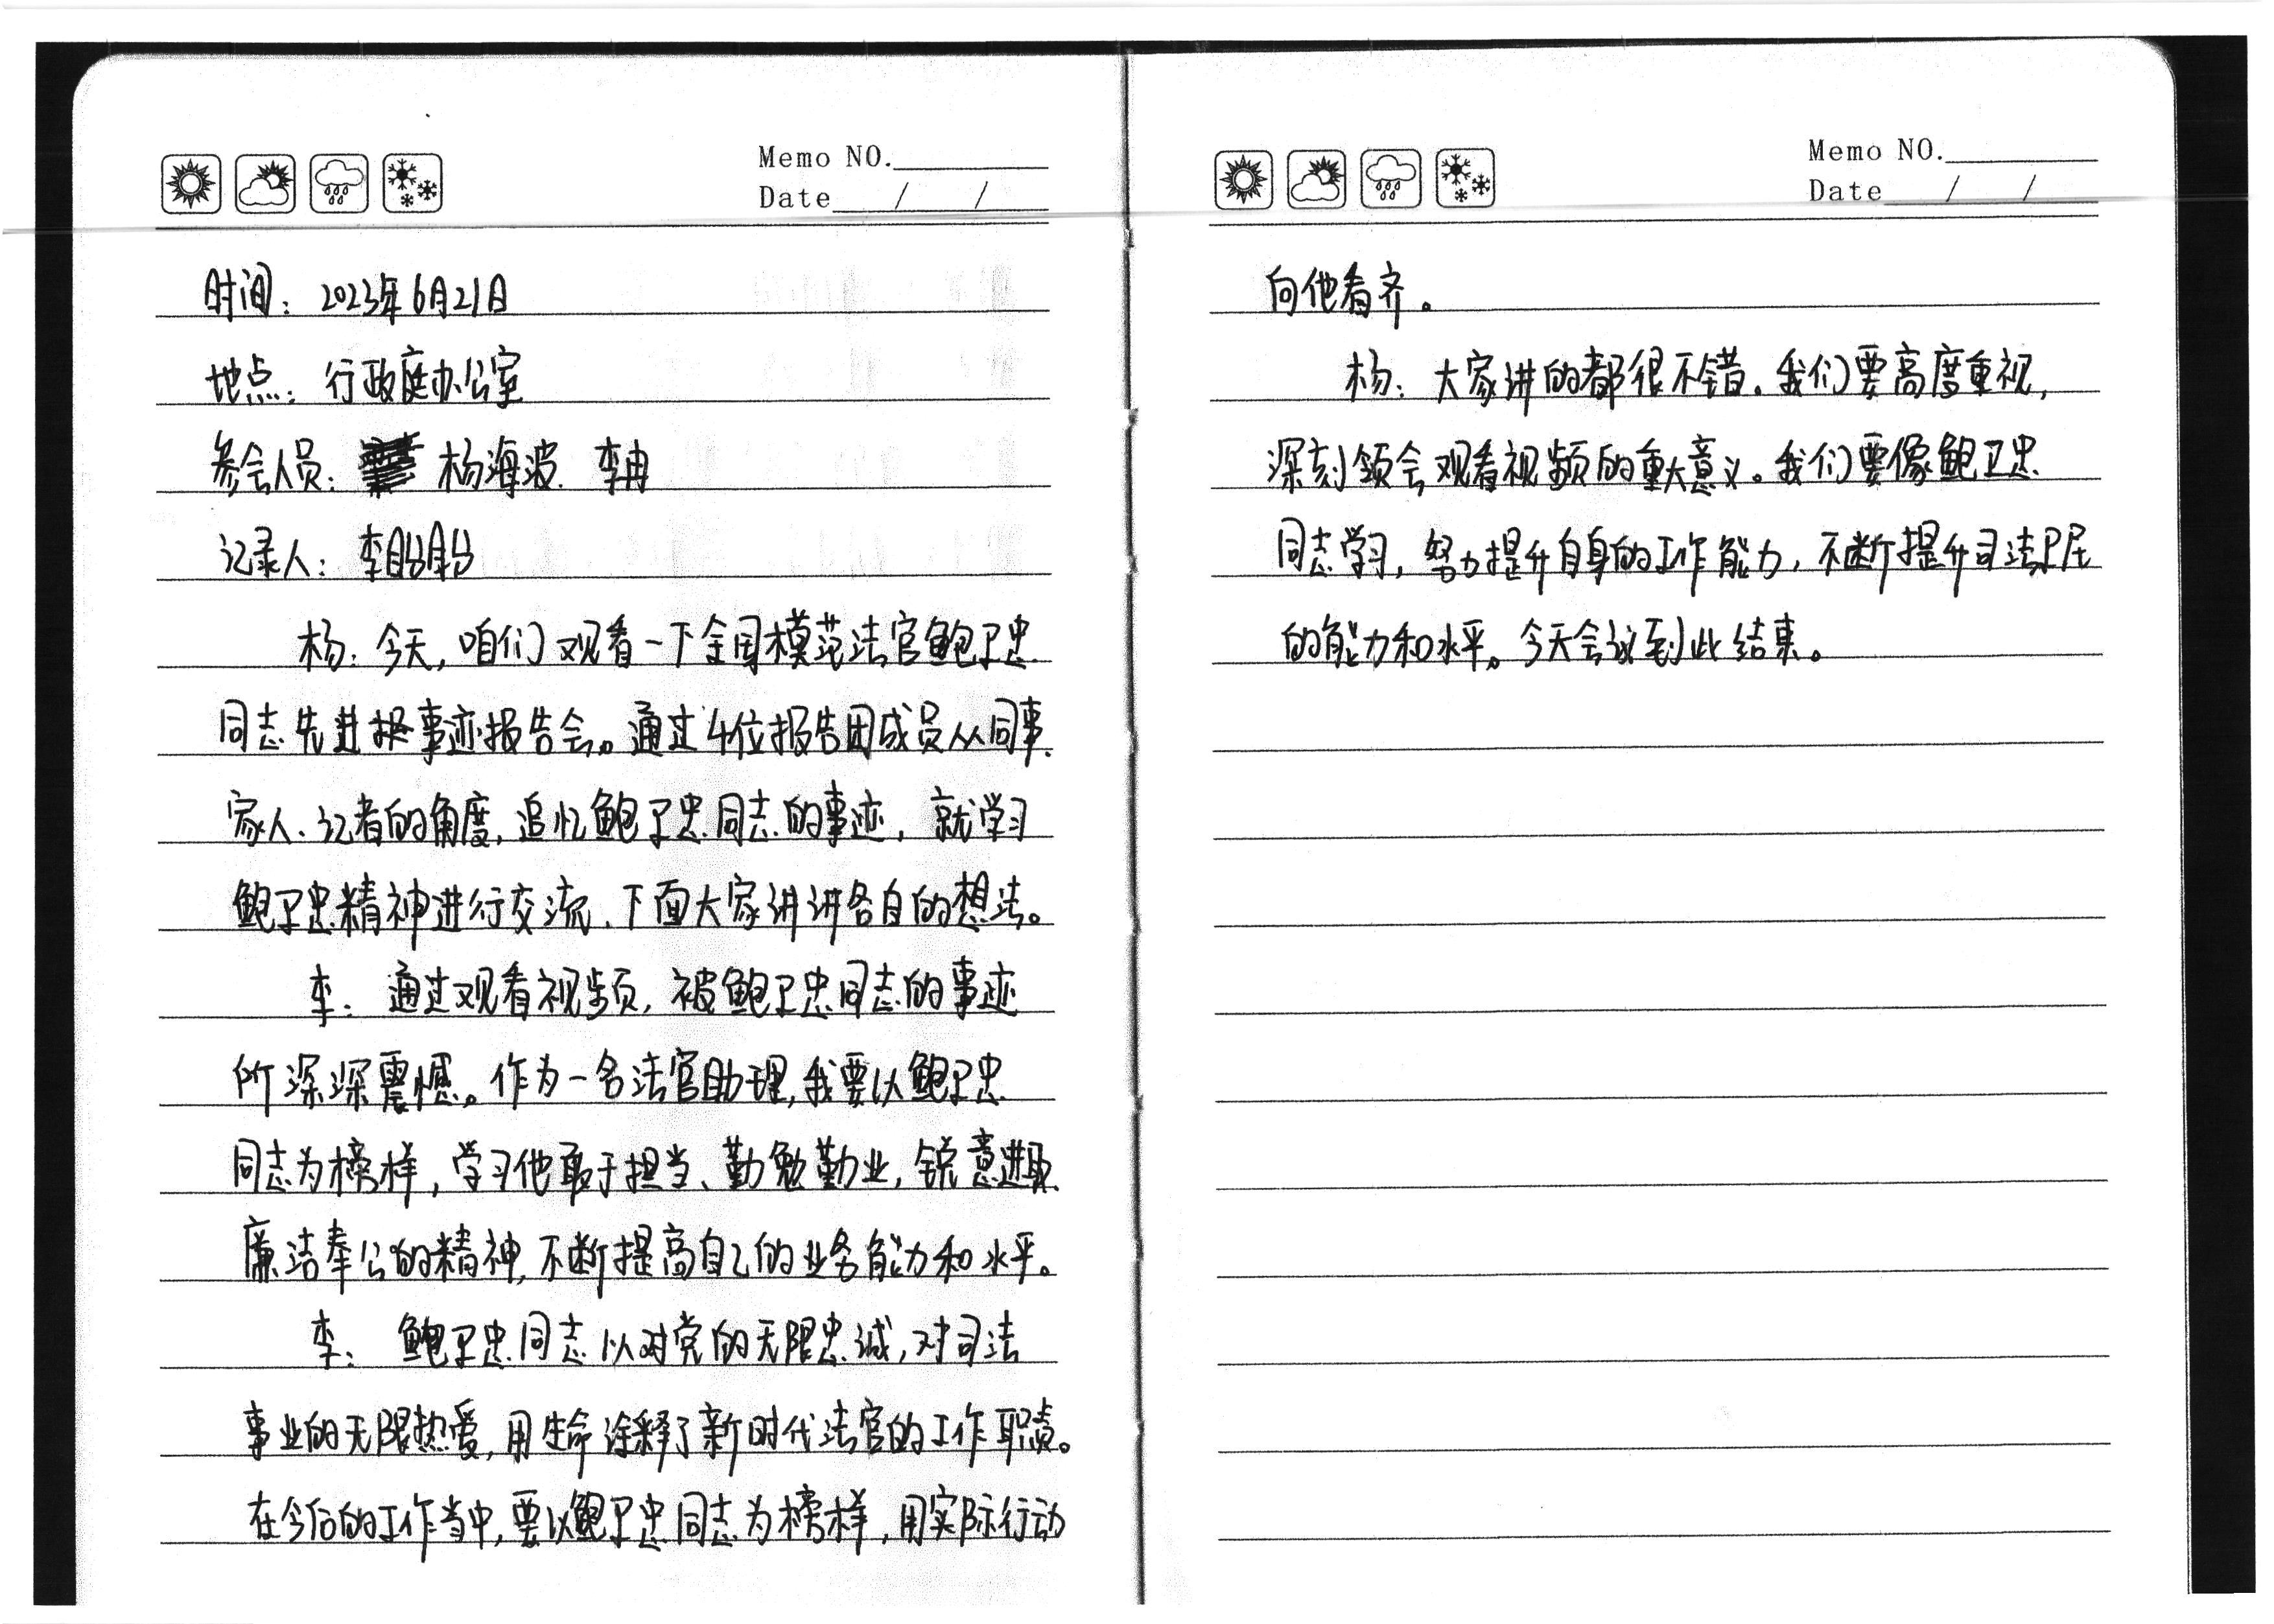 Memo NO.
Date / /
时间：2023年6月21日
地点：行政庭办公室
参会人员：杨海波、李冉
记录人：李盼盼
杨：今天，咱们观看一下全国模范法官鲍卫忠
同志先进事迹报告会。通过4位报告团成员从同事、
家人、记者的角度，追忆鲍卫忠同志的事迹，就学习
鲍卫忠精神进行交流，下面大家讲讲各自的想法。
李：通过观看视频，被鲍卫忠同志的事迹
所深深震憾。作为一名法官助理，我要以鲍卫忠
同志为榜样，学习他敢于担当、勤勉勤业，锐意进取、
廉洁奉公的精神，不断提高自己的业务能力和水平。
李：鲍卫忠同志以对党的无限忠诚，对司法
事业的无限热爱，用生命诠释了新时代法官的工作职责。
在今后的工作当中，要以鲍卫忠同志为榜样，用实际行动
Memo NO.
Date / /
向他看齐。
杨：大家讲的都很不错。我们要高度重视，
深刻领会观看视频的重大意义。我们要像鲍卫忠
同志学习，努力提升自身的工作能力，不断提升司法为民
的能力和水平。今天会议到此结束。